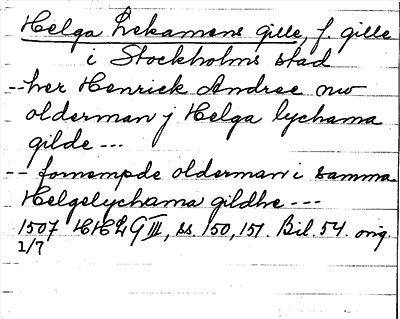 Helga Lekamens gille, f. gille
i Stockholms stad
-- her Henrick Andree nw
olderman j Helga lychama
gilde ---
-- fornempde olderman i samma
Helgelychama gildhe ---
1507 HHLG III, ss. 150, 151. Bil. 54. orig.
1/7